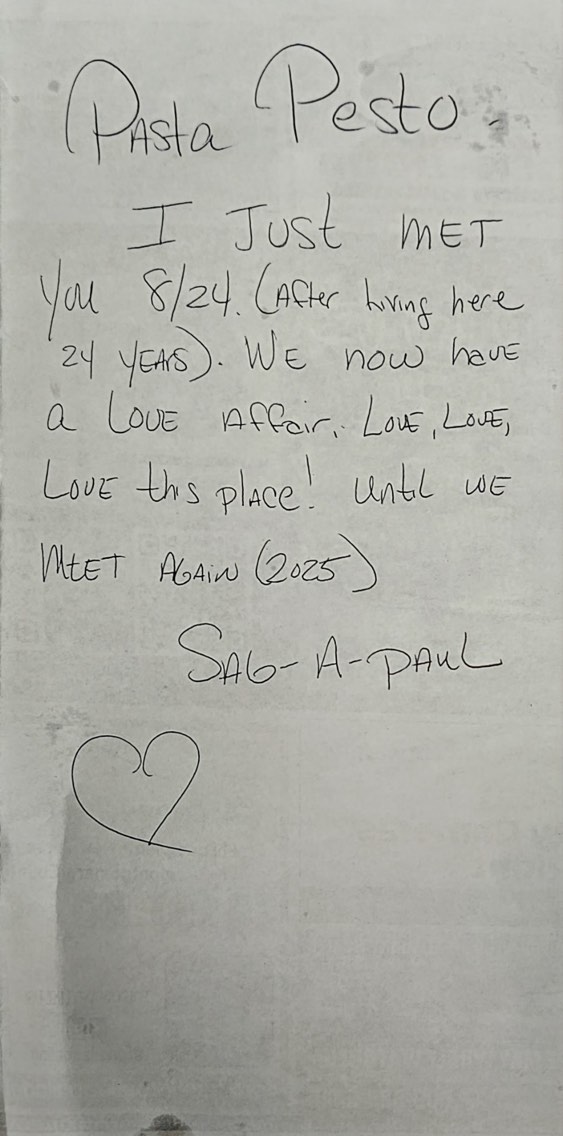 Pasta Pesto -
I Just MET
You 8/24. (After living here
24 YEARS). WE now have
a LOVE Affair. LOVE, LOVE,
LOVE this place! Until WE
MEET AGAIN (2025)
SAG-A-PAUL